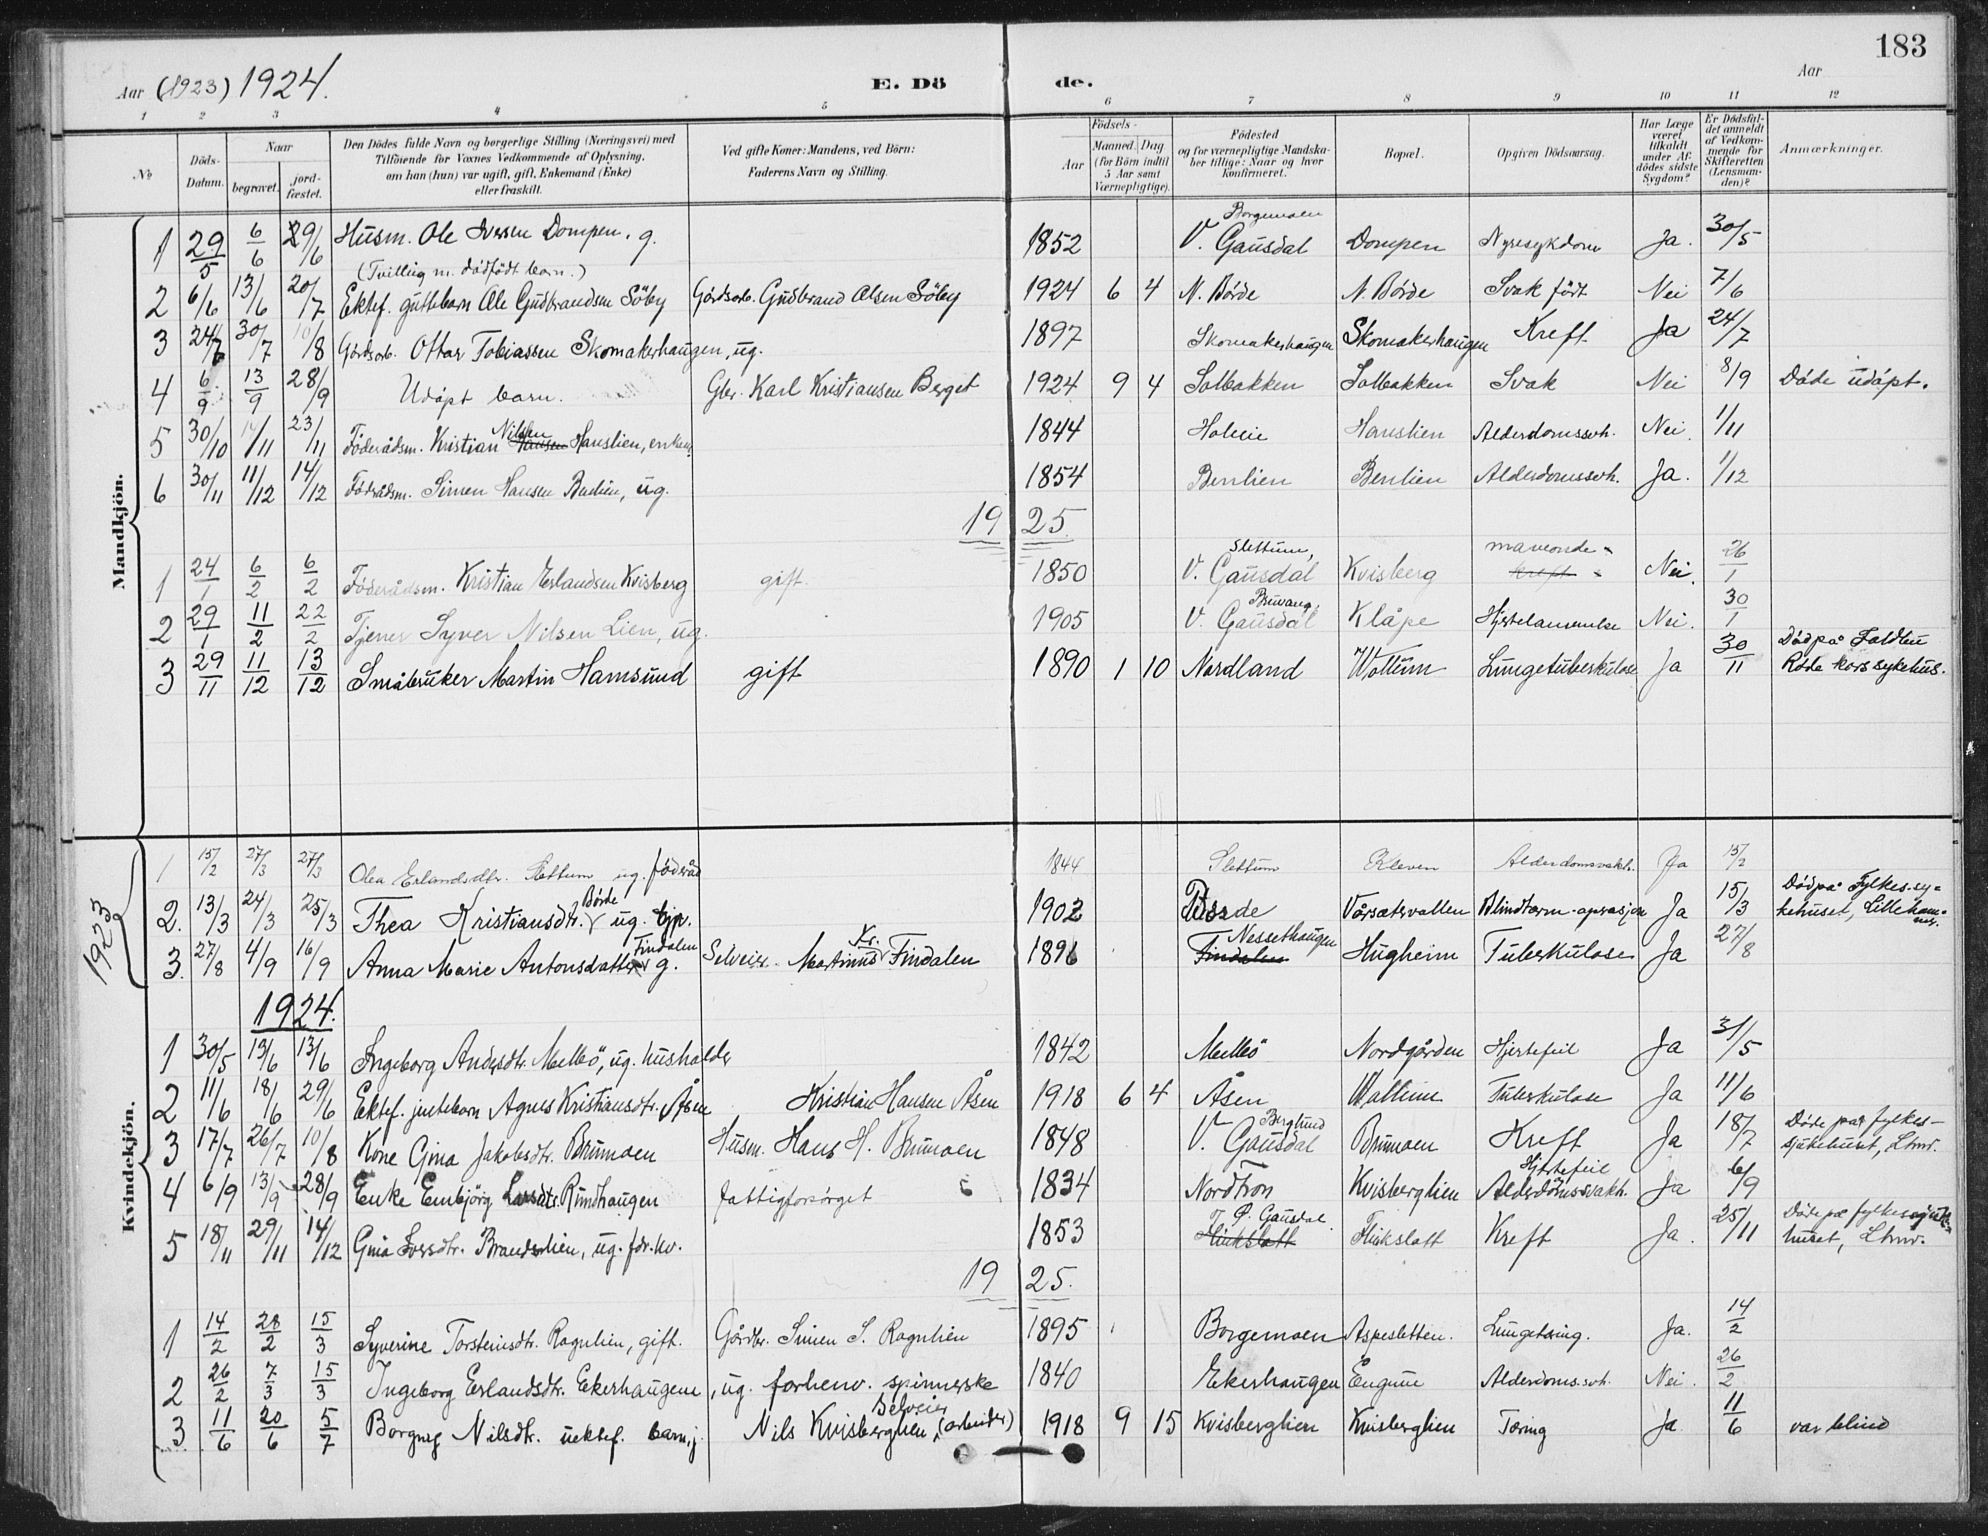 183
Aar (1923) 1924. E. Dö de. Aar
1 2 3 4 5 6 7 8 9 10 11 12
No
Döds-Datum.
Naar
begravet. jord-fæstet.
Den Dödes fulde Navn og borgerlige Stilling (Næringsvei) med
Tilföiende for Voxnes Vedkommende af Oplysning,
om han (hun) var ugift, gift, Enkemand (Enke)
eller fraskilt.
Ved gifte Koner: Mandens, ved Börn:
Faderens Navn og Stilling.
Födsels-
Aar
Maaned. Dag
(for Börn indtil
5 Aar samt
Værnepligtige).
Födested
og for værnepligtige Mandska-
ber tillige: Naar og hvor
Konfirmeret.
Bopæl.
Opgiven Dödsaarsag.
Har Læge
været
tilkaldt
under Af-
dödes sidste
Sygdom?
Er Dödsfal-
det anmeldt
af Vedkom-
mende for
Skifteretten
(Lensman-
den)?
Anmærkninger.
Mandkjön.
1 29/5 6/6 29/6 Husm. Ole Iversen Dompen. g. 1852 Borgemoen V. Gausdal Dompen Nyresykdom Ja. 30/5
(Tvilling m. dödfödt barn.)
2 6/6 13/6 20/7 Ektef. guttebarn Ole Gudbrandsen Söby Gårdsarb. Gudbrand Olsen Söby 1924 6 4 N. Börde N. Börde Svak född Nei 7/6
3 24/7 30/7 10/8 Gårdsarb. Ottar Tobiassen Skomakerhaugen, ug. 1897 Skomakerhaugen Skomakerhaugen Kreft Ja 24/7
4 6/9 13/9 28/9 Udöpt barn. Gbr. Karl Kristiansen Berget 1924 9 4 Solbakken Solbakken Svak Nei 8/9 Döde udöpt.
5 30/10 /11 23/11 Föderådsm. Kristian Nilsen Hansen Hanslien, enkem. 1844 Holsie Hanslien Alderdomssvh. Nei. 1/11
6 30/11 11/12 14/12 Föderådsm. Simen Hansen Benlien, ug. 1854 Benlien Benlien Alderdomssvh. Ja. 1/12
1925.
1 24/1 6/2 6/2 Föderådsm. Kristian Erlandsen Kvisberg gift. 1850 Slettum, V. Gausdal Kvisberg maveonde kreft Nei. 26/1
2 29/1 11/2 22/2 Tjener Syver Nilsen Lien, ug. 1905 V. Gausdal Klåpe Hjertelammelse Nei. 30/1
3 29/11 11/12 13/12 Småbruker Martin Hamsund gift 1890 1 10 Nordland Wollum Lungetuberkulose Ja 30/11 Död på
Röde kors sykehus.
Kvindekjön.
1923
1 15/2 27/3 27/3 Olea Erlandsdtr. Slettum ug. föderåd 1844 Slettum Kleven Alderdomssvakh. Ja 15/2
2. 13/3 24/3 25/3 Thea Kristiansdtr. Börde ug. tjp. 1902 Börde Vårsætervollen Blindtarm-operasjon Ja 15/3 Död på Fylkes.sy-
kehuset, Lilleham-
mer.
3. 27/8 4/9 16/9 Anna Marie Antonsdatter Findalen g. Selveier Martinus Kr. Findalen 1896 Nessethaugen Findalen Hugheim Tuberkulose Ja 27/8
1924.
1 30/5 13/6 13/6 Ingeborg Andersdtr. Mellbö, ug. husholder 1842 Mellbö Nordgården Hjertefeil Ja 31/5
2 11/6 18/6 29/6 Ektef. jentebarn Agnes Kristiansdtr. Åsen Kristian Hansen Åsen 1918 6 4 Åsen Wollum Tuberkulose Ja 11/6
3 17/7 26/7 10/8 Kone Gina Jakobsdtr. Brumoen Husm. Hans H. Brumoen 1848 Berglund V. Gausdal Brumoen Kreft Ja 18/7 Döde på fylkes-
sjukehuset, Lhmr.
4 6/9 13/9 28/9 Enke Embjörg Larsdtr. Rundhaugen fattigforsörget 1834 Nordfron Kvisberglien Hjertefeil Alderdomssvakh. Ja 6/9
5 18/11 29/11 14/12 Gina Iversdtr. Brandslien, ug. 1853 Ö. Gausdal Flinkslått Flinkslått Kreft Ja. 25/11 Döde på fylkessjuke-
huset, Lhmr.
1925.
1 14/2 28/2 15/3 Syverine Torsteinsdtr. Rognlien, gift. Gårdbr. Simen S. Rognlien 1895 Borgemoen Aspesletten. Lungetæring. Ja. 14/2
2 26/2 7/3 15/3 Ingeborg Erlandsdtr. Ekerhaugen, ug. forhenv. spinnerske 1840 Ekerhaugen Engum Alderdoms.svh. Nei. 26/2
3 11/6 20/6 5/7 Borgny Nilsdtr. uektef. barn, j. Nils Kvisberglien, Selveier (arbeider) 1918 9 15 Kvisberglien Kvisberglien Tæring Ja 11/6 var blind